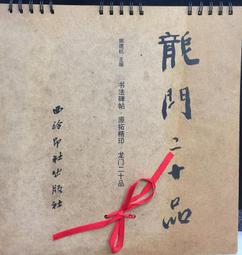 龍門二十品
书法碑帖·原拓精印·龙门二十品
西泠印社出版社